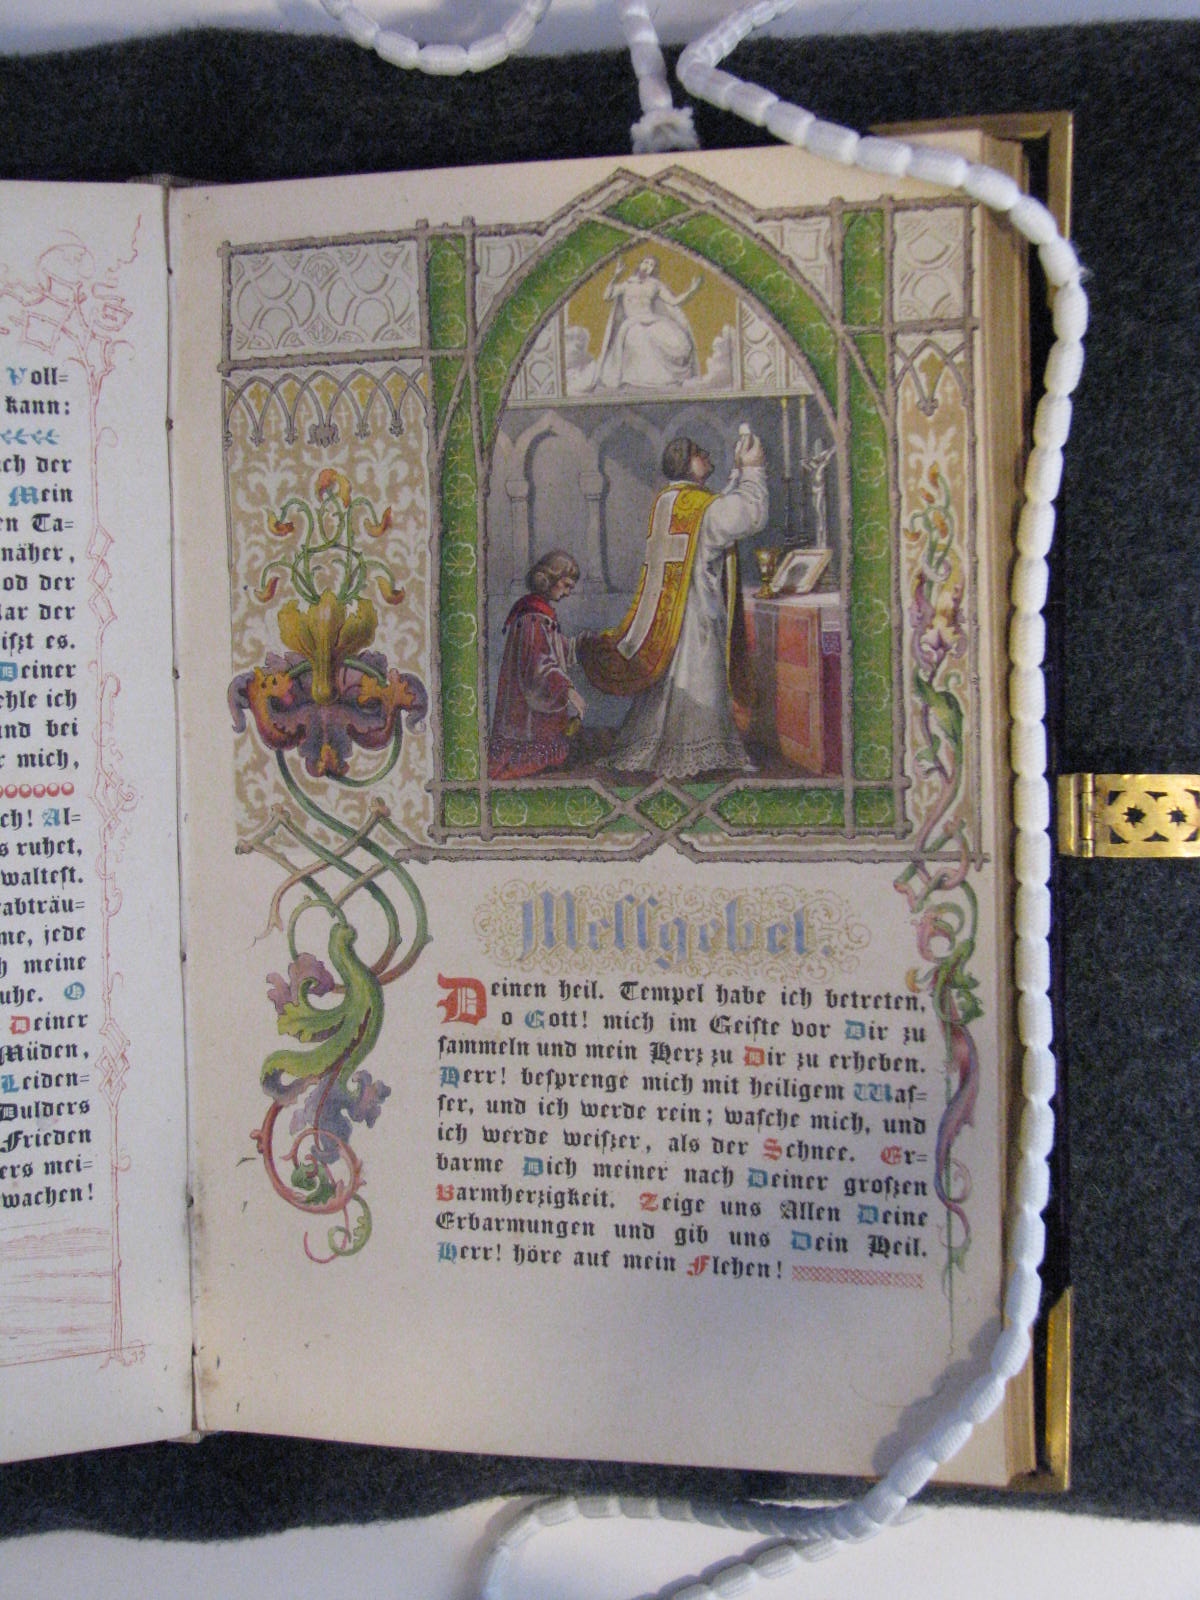 Voll=
kann:
der
Mein
Ta=
näher,
der
der
es.
Deiner
ich
und bei
mich,
Al=
ruhet,
jede
meine
O
Deiner
Müden,
Leiden=
Dulders
Frieden
mei=
wachen!
Messgebet.
Deinen heil. Tempel habe ich betreten,
o Gott! mich im Geiste vor Dir zu
sammeln und mein Herz zu Dir zu erheben.
Herr! besprenge mich mit heiligem Was=
ser, und ich werde rein; wasche mich, und
ich werde weiszer, als der Schnee. Er=
barme Dich meiner nach Deiner groszen
Barmherzigkeit. Zeige uns Allen Deine
Erbarmungen und gib uns Dein Heil.
Herr! höre auf mein Flehen!